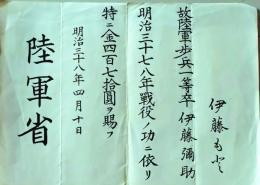 伊藤もと
故陸軍歩兵一等卒 伊藤彌助
明治三十七八年戰役ノ功ニ依リ
特ニ金四百七拾圓ヲ賜フ
明治三十八年四月十日
陸軍省